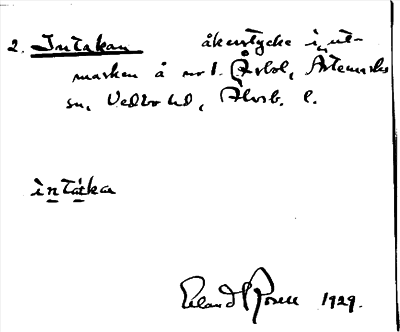 2. Intakan åkerstycke i ut-
marken å nr 1. Årbol, Ärtemarks
sn, Vedbo hd, Älvsb. l.
intáka
Erland Rosell 1929.